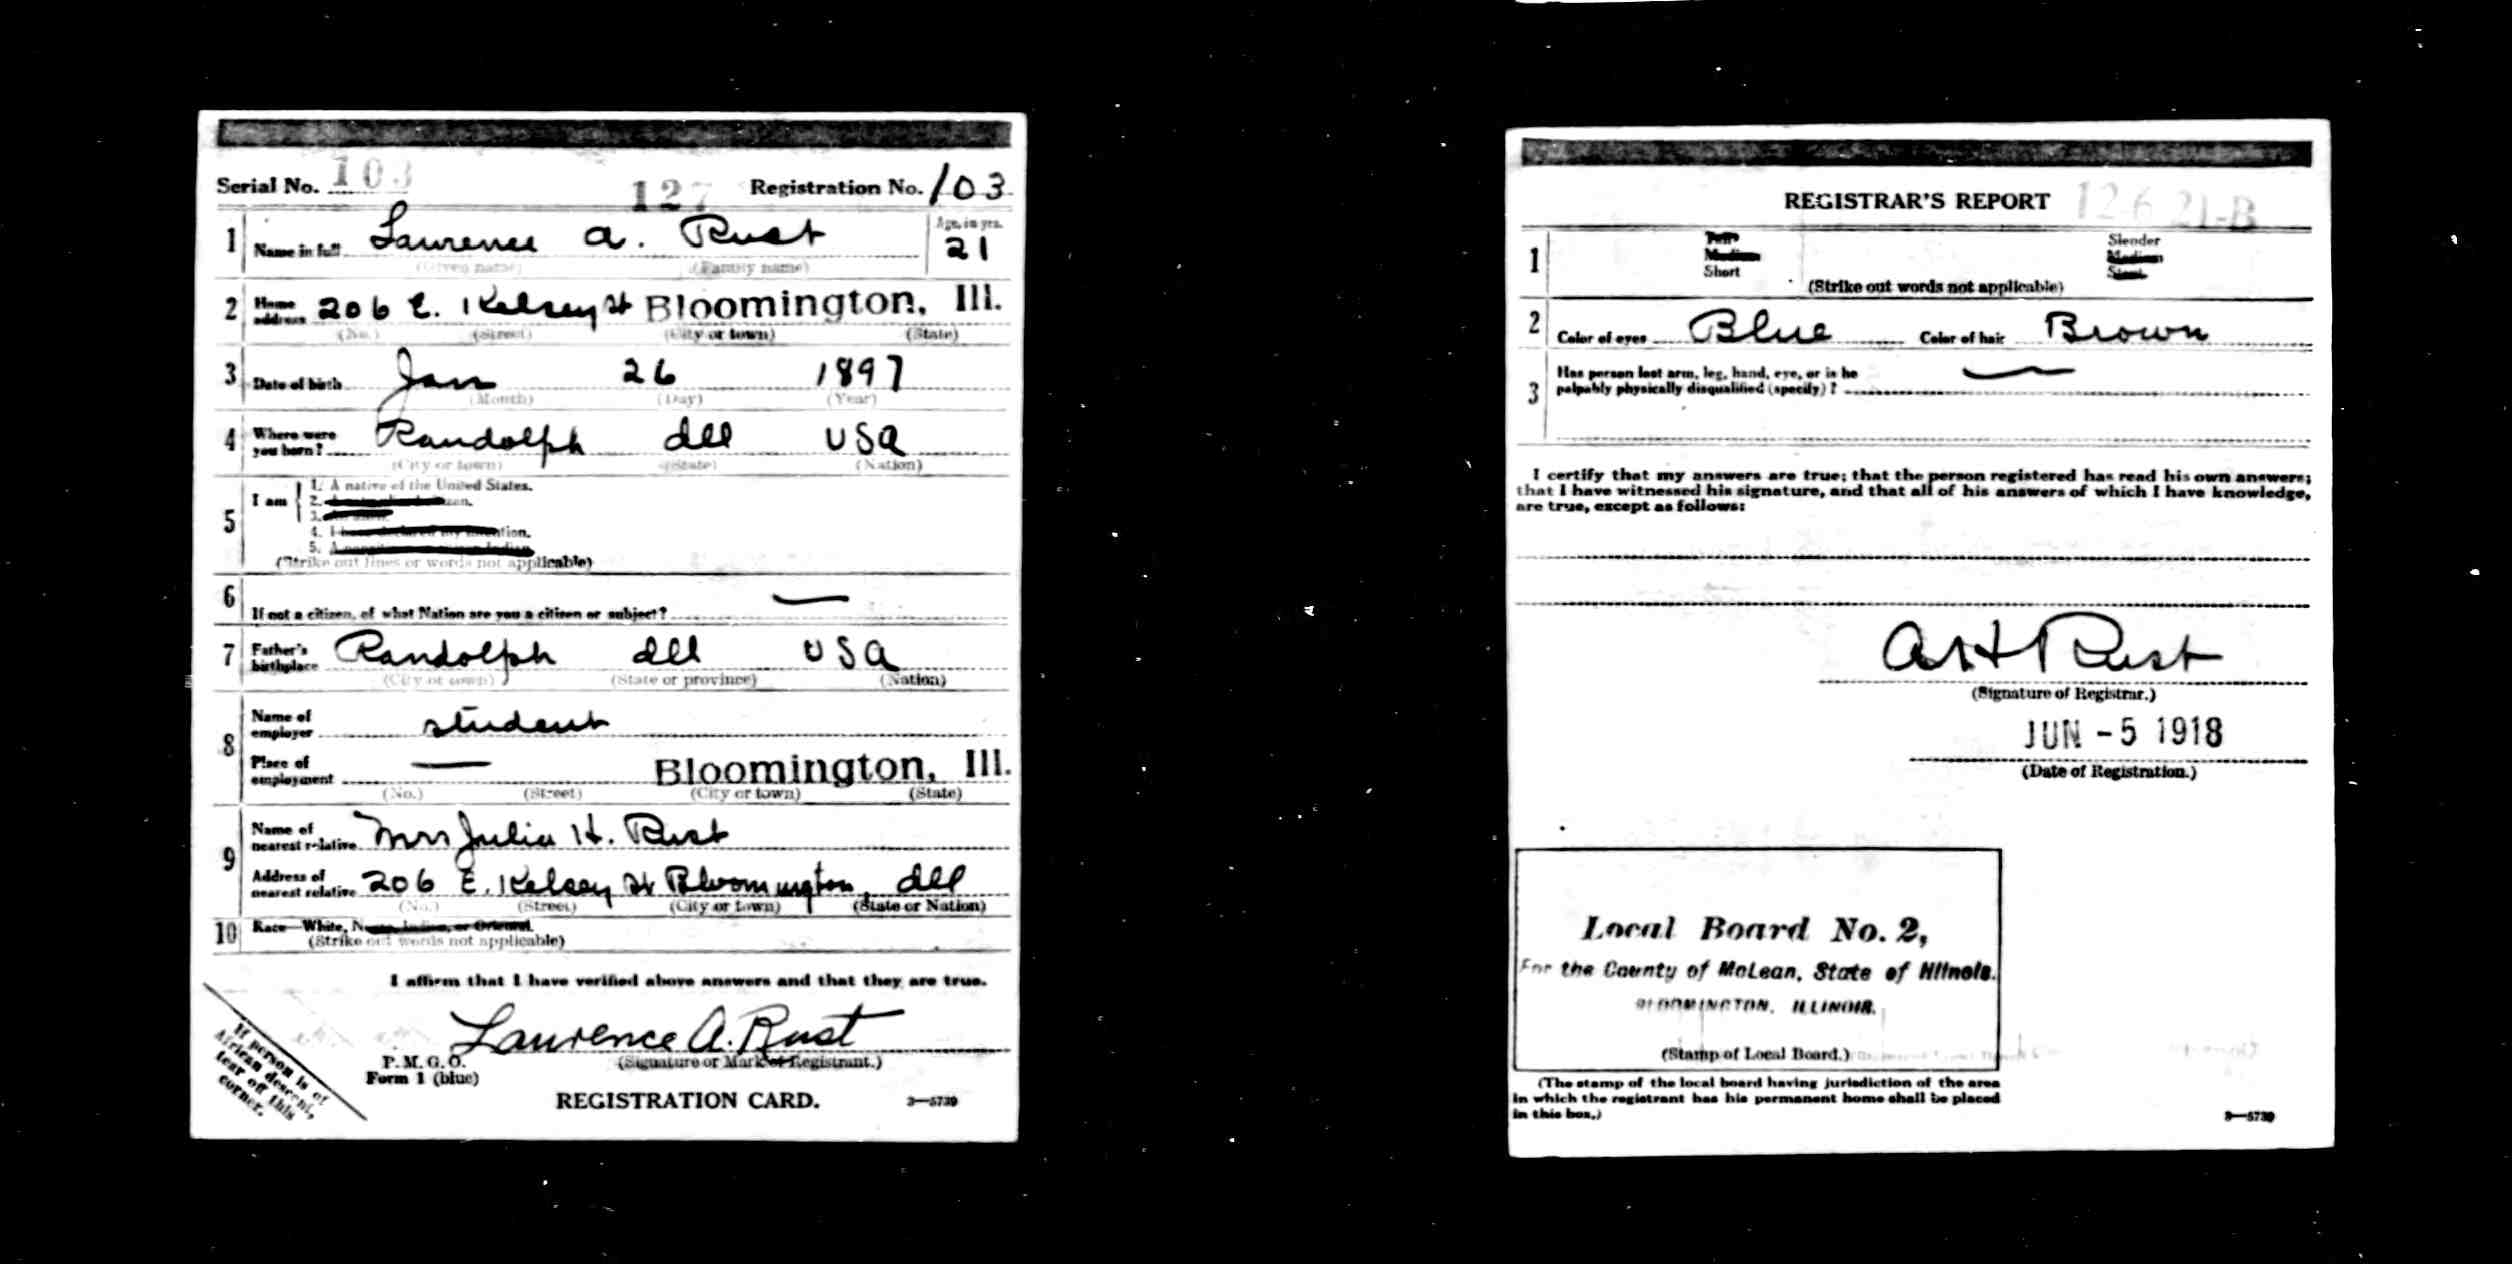 Serial No. 103 127 Registration No. 103
1 Name in full Lawrence A. Rust Age, in yrs. 21
(Given name) (Family name)
2 Home address 206 E. Kelsey St Bloomington, Ill.
(No.) (Street) (City or town) (State)
3 Date of birth Jan 26 1897
(Month) (Day) (Year)
4 Where were you born? Randolph Ill USA
(City or town) (State) (Nation)
5 I am
1. A native of the United States.
2.
3.
4. I have declared my intention.
5. Indian
(Strike out lines or words not applicable)
6 If not a citizen, of what Nation are you a citizen or subject? —
7 Father's birthplace Randolph Ill USA
(City or town) (State or province) (Nation)
8 Name of employer student
Place of employment — Bloomington, Ill.
(No.) (Street) (City or town) (State)
9 Name of nearest relative Mrs Julia H. Rust
Address of nearest relative 206 E. Kelsey St Bloomington, Ill
(No.) (Street) (City or town) (State or Nation)
10 Race—White, Negro, Indian, or Oriental.
(Strike out words not applicable)
I affirm that I have verified above answers and that they are true.
Lawrence A. Rust
P. M. G. O. (Signature or Mark of Registrant.)
Form 1 (blue)
REGISTRATION CARD. 3—5739
If person is of
African descent,
tear off this
corner.
REGISTRAR'S REPORT 126 21-B
1 Tall Slender
Medium Medium
Short Stout
(Strike out words not applicable)
2 Color of eyes Blue Color of hair Brown
3 Has person lost arm, leg, hand, eye, or is he —
palpably physically disqualified (specify)?
I certify that my answers are true; that the person registered has read his own answers;
that I have witnessed his signature, and that all of his answers of which I have knowledge,
are true, except as follows:
A H Rust
(Signature of Registrar.)
JUN - 5 1918
(Date of Registration.)
Local Board No. 2,
For the County of McLean, State of Illinois.
BLOOMINGTON, ILLINOIS.
(Stamp of Local Board.)
(The stamp of the local board having jurisdiction of the area
in which the registrant has his permanent home shall be placed
in this box.)
3—5739